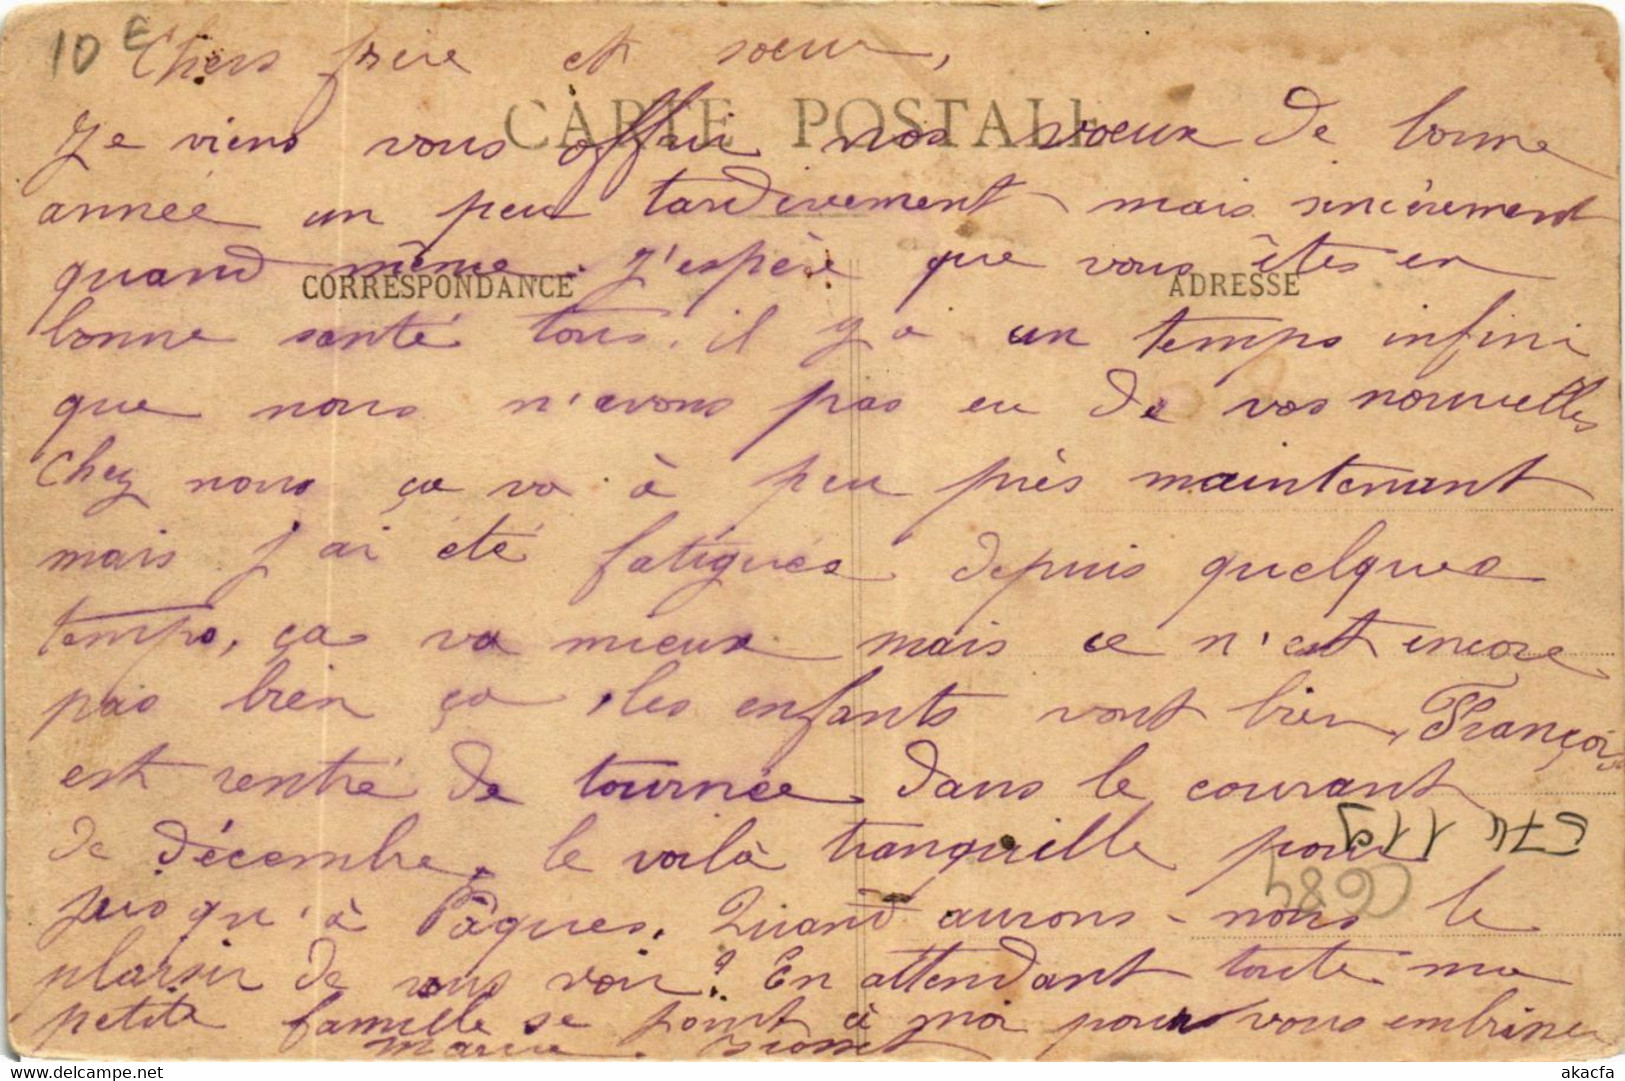 10 €
Chers frère et soeur,
CARTE POSTALE
Je viens vous offrir nos voeux de bonne
année un peu tardivement mais sincèrement
quand même. J'espère que vous êtes en
CORRESPONDANCE ADRESSE
bonne santé tous. il y a un temps infini
que nous n'avons pas eu de vos nouvelles
Chez nous ça va à peu près maintenant
mais j'ai été fatiguée depuis quelques
temps, ça va mieux mais ce n'est encore
pas bien ça, les enfants vont bien, François
est rentré de tournée dans le courant
de décembre, le voilà tranquille pour
jusqu'à Pâques. Quand aurons-nous le
plaisir de vous voir? En attendant toute ma
petite famille se joint à moi pour vous embrasser
Marie
akpool.com
akacfa